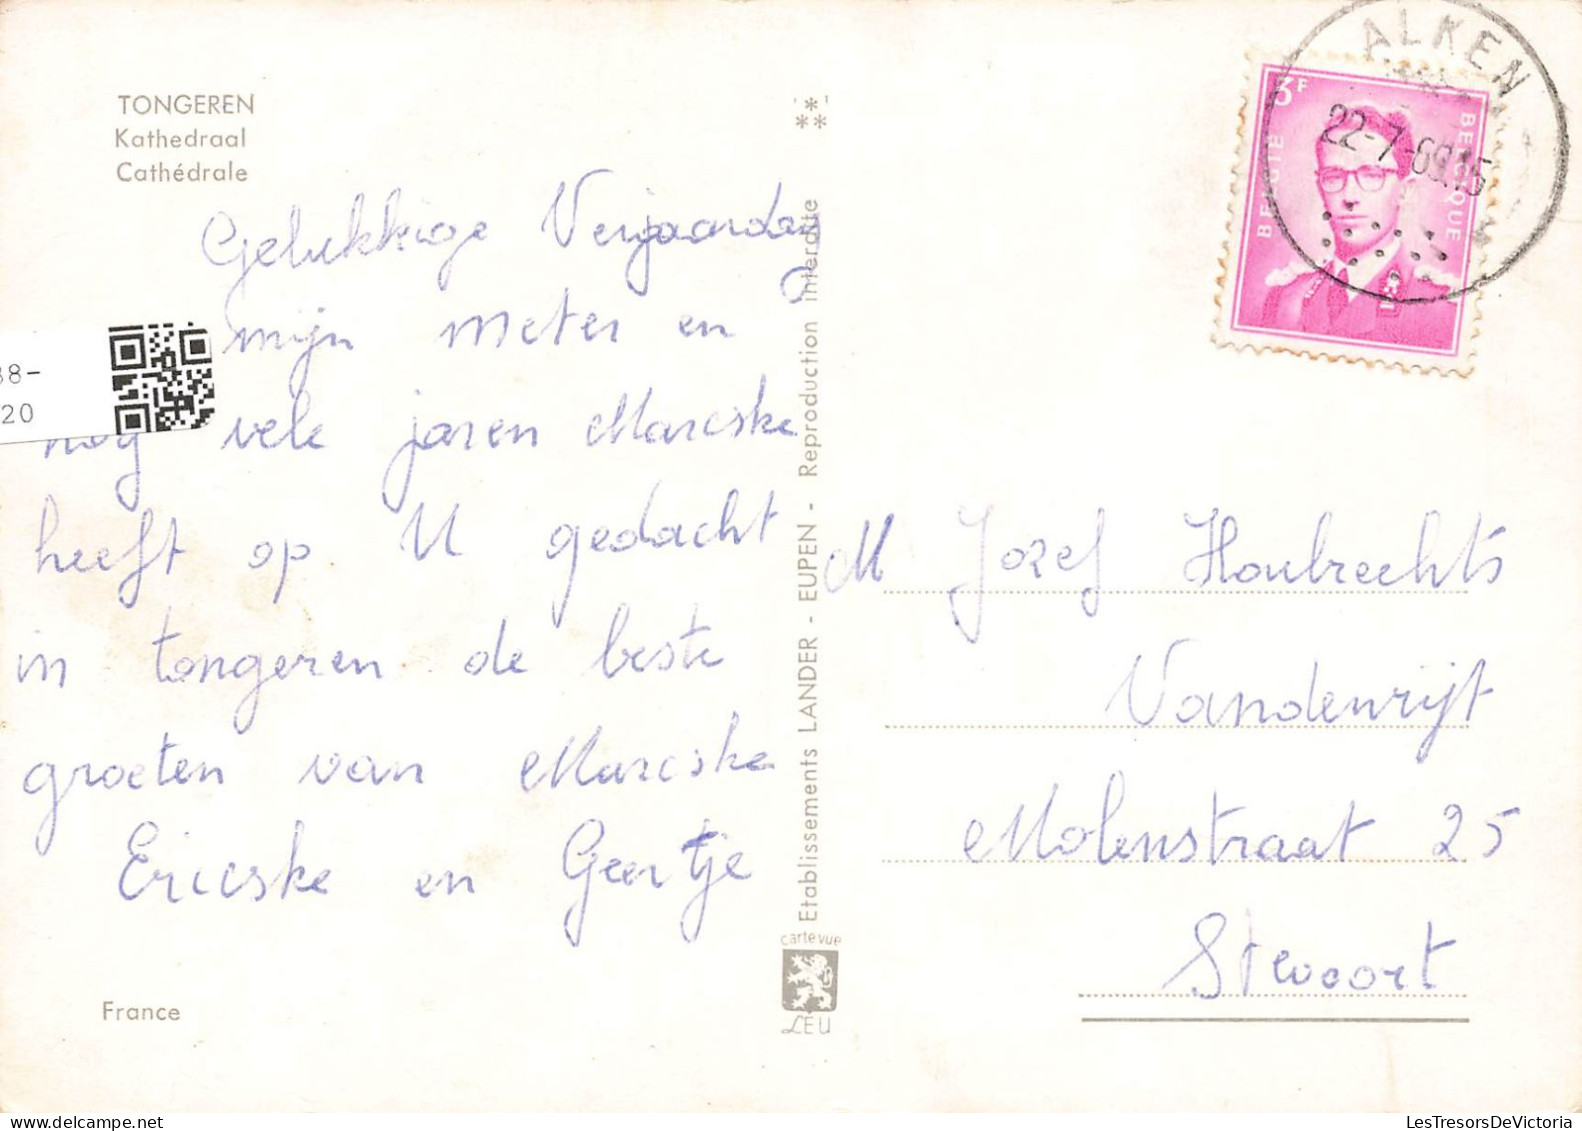 TONGEREN
Kathedraal
Cathédrale
Gelukkige Verjaardag
mijn meter en
nog vele jaren Marcske
heeft op U gedacht
in tongeren de beste
groeten van Marcske
Ericske en Geertje
France
38-
20
Etablissements LANDER - EUPEN - Reproduction interdite
carte vue
LEU
ALKEN
22-7-69.15
3F
BELGIE
BELGIQUE
M Jozef Houbrechts
Vandenrijt
Molenstraat 25
Stevoort
LesTresorsDeVictoria.com